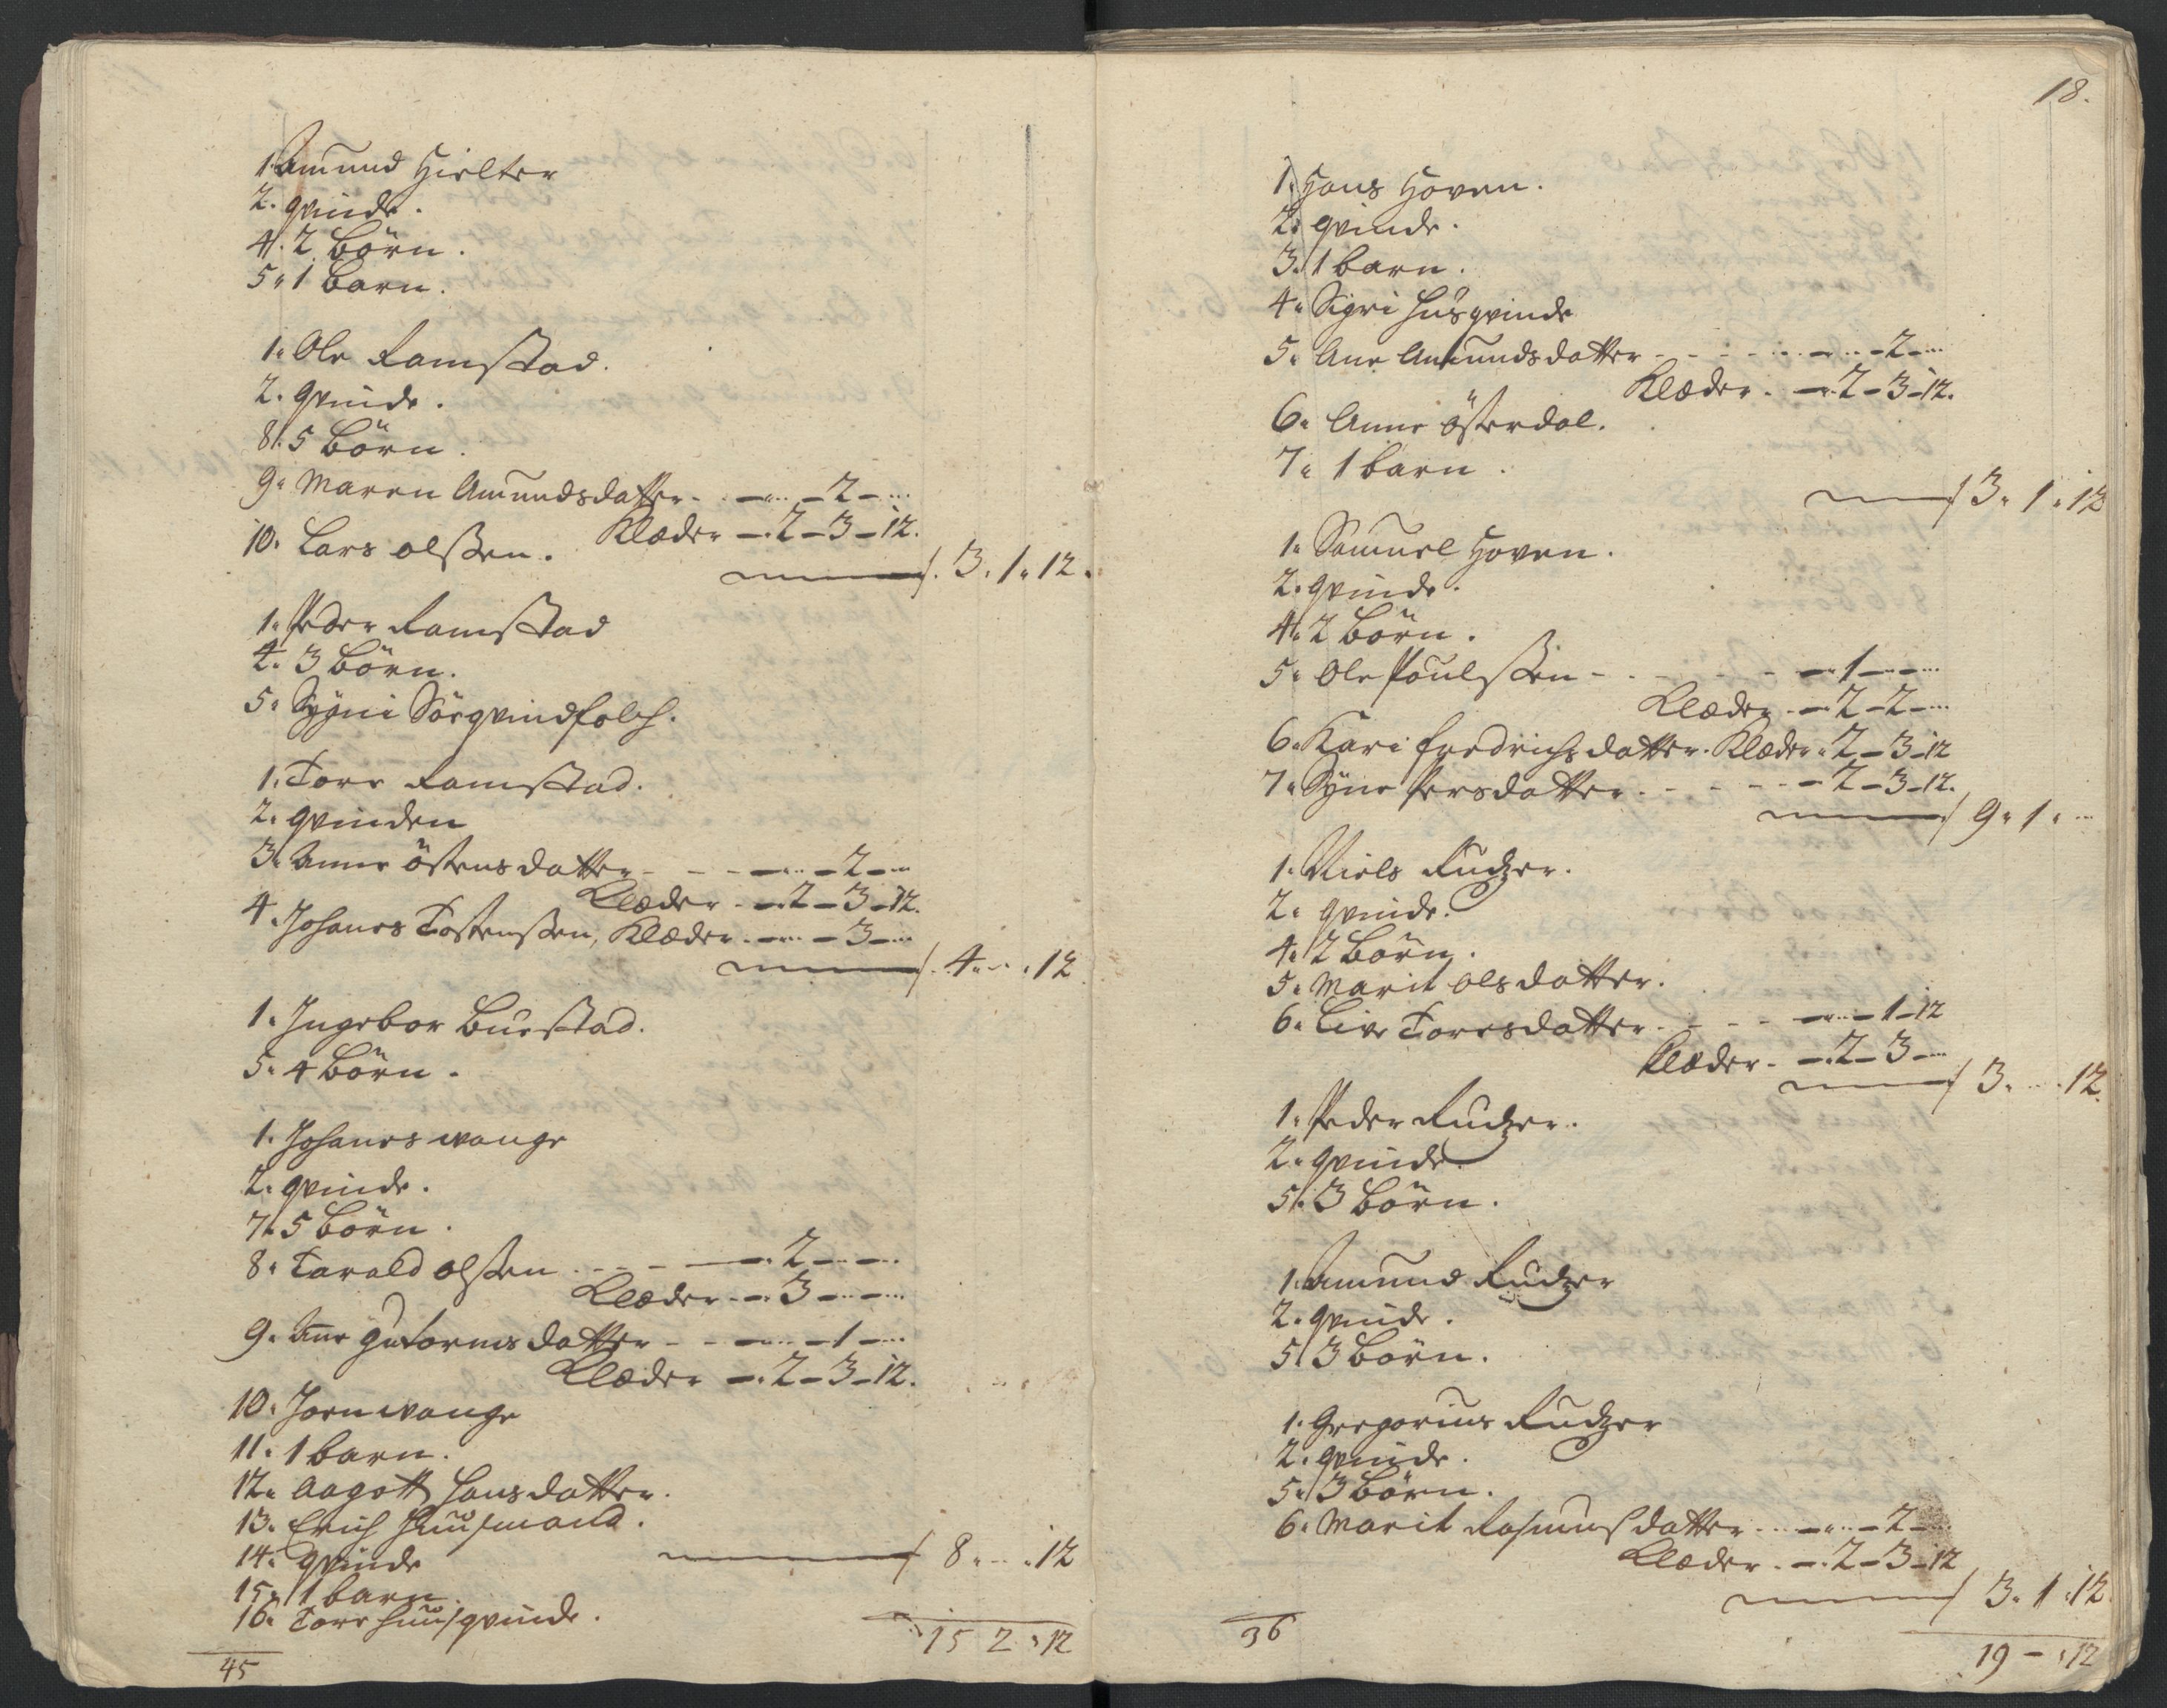 1. Amund Hielter
2. qvinde.
4. 2 börn.
5. 1 barn.
1. Ole Ramstad.
2. qvinde.
8. 5 börn.
9. Maren Amundsdatter - - 2 -
Klæder - 2 - 3 - 12.
10. Lars olssen.
3. 1. 12.
1. Peder Ramstad
4. 3 börn.
5. Sygni Sörqvindfolch.
1. Tore Ramstad.
2. qvinden
3. Anne östensdatter - - 2 -
Klæder - 2 - 3 - 12.
4. Johanes Tostenssen, Klæder - - 3 -
4. - . 12
1. Ingebor Buestad.
5. 4 börn.
1. Johanes wange
2. qvinde.
7. 5 börn.
8. Tarald olssen - - 2 - -
Klæder - 3 - -
9. Ane Gutormsdatter - - 1 -
Klæder - 2 - 3 - 12.
10. Joen wange
11. 1 barn.
12. Aagott hansdatter.
13. Erich huusmand.
14. qvinde
8. - . 12
15. 1 barn.
16. Tore huusqvinde.
15 2 . 12
45
18.
1. Hans Hoven.
2. qvinde.
3. 1 barn.
4. Sigri husqvinde
5. Ane Amundsdatter - - 2 -
Klæder - 2 - 3 - 12.
6. Anne österdal.
7. 1 barn.
3. 1. 12
1. Samuel Hoven.
2. qvinde.
4. 2 börn.
5. Ole Poulssen - 1 - -
Klæder - 2 - 2 -
6. Kari fredrichsdatter. Klæder. 2 - 3 - 12
7. Syne Persdatter - 2 - 3 - 12.
9. 1. -
1. Niels Rudzer.
2. qvinde.
4. 2 börn.
5. Marit olsdatter.
6. Live Toresdatter - - 1 - 12
Klæder - 2 - 3 -
3. - . 12.
1. Peder Rudzer.
2. qvinde.
5. 3 börn.
1. Amund Rudzer
2. qvinde.
5. 3 börn.
1. Gregorius Rudzer
2. qvinde.
5. 3 börn.
6. Marit Rasmusdatter - - 2 -
Klæder - 2 - 3 - 12
3. 1. 12
36
19 - . 12